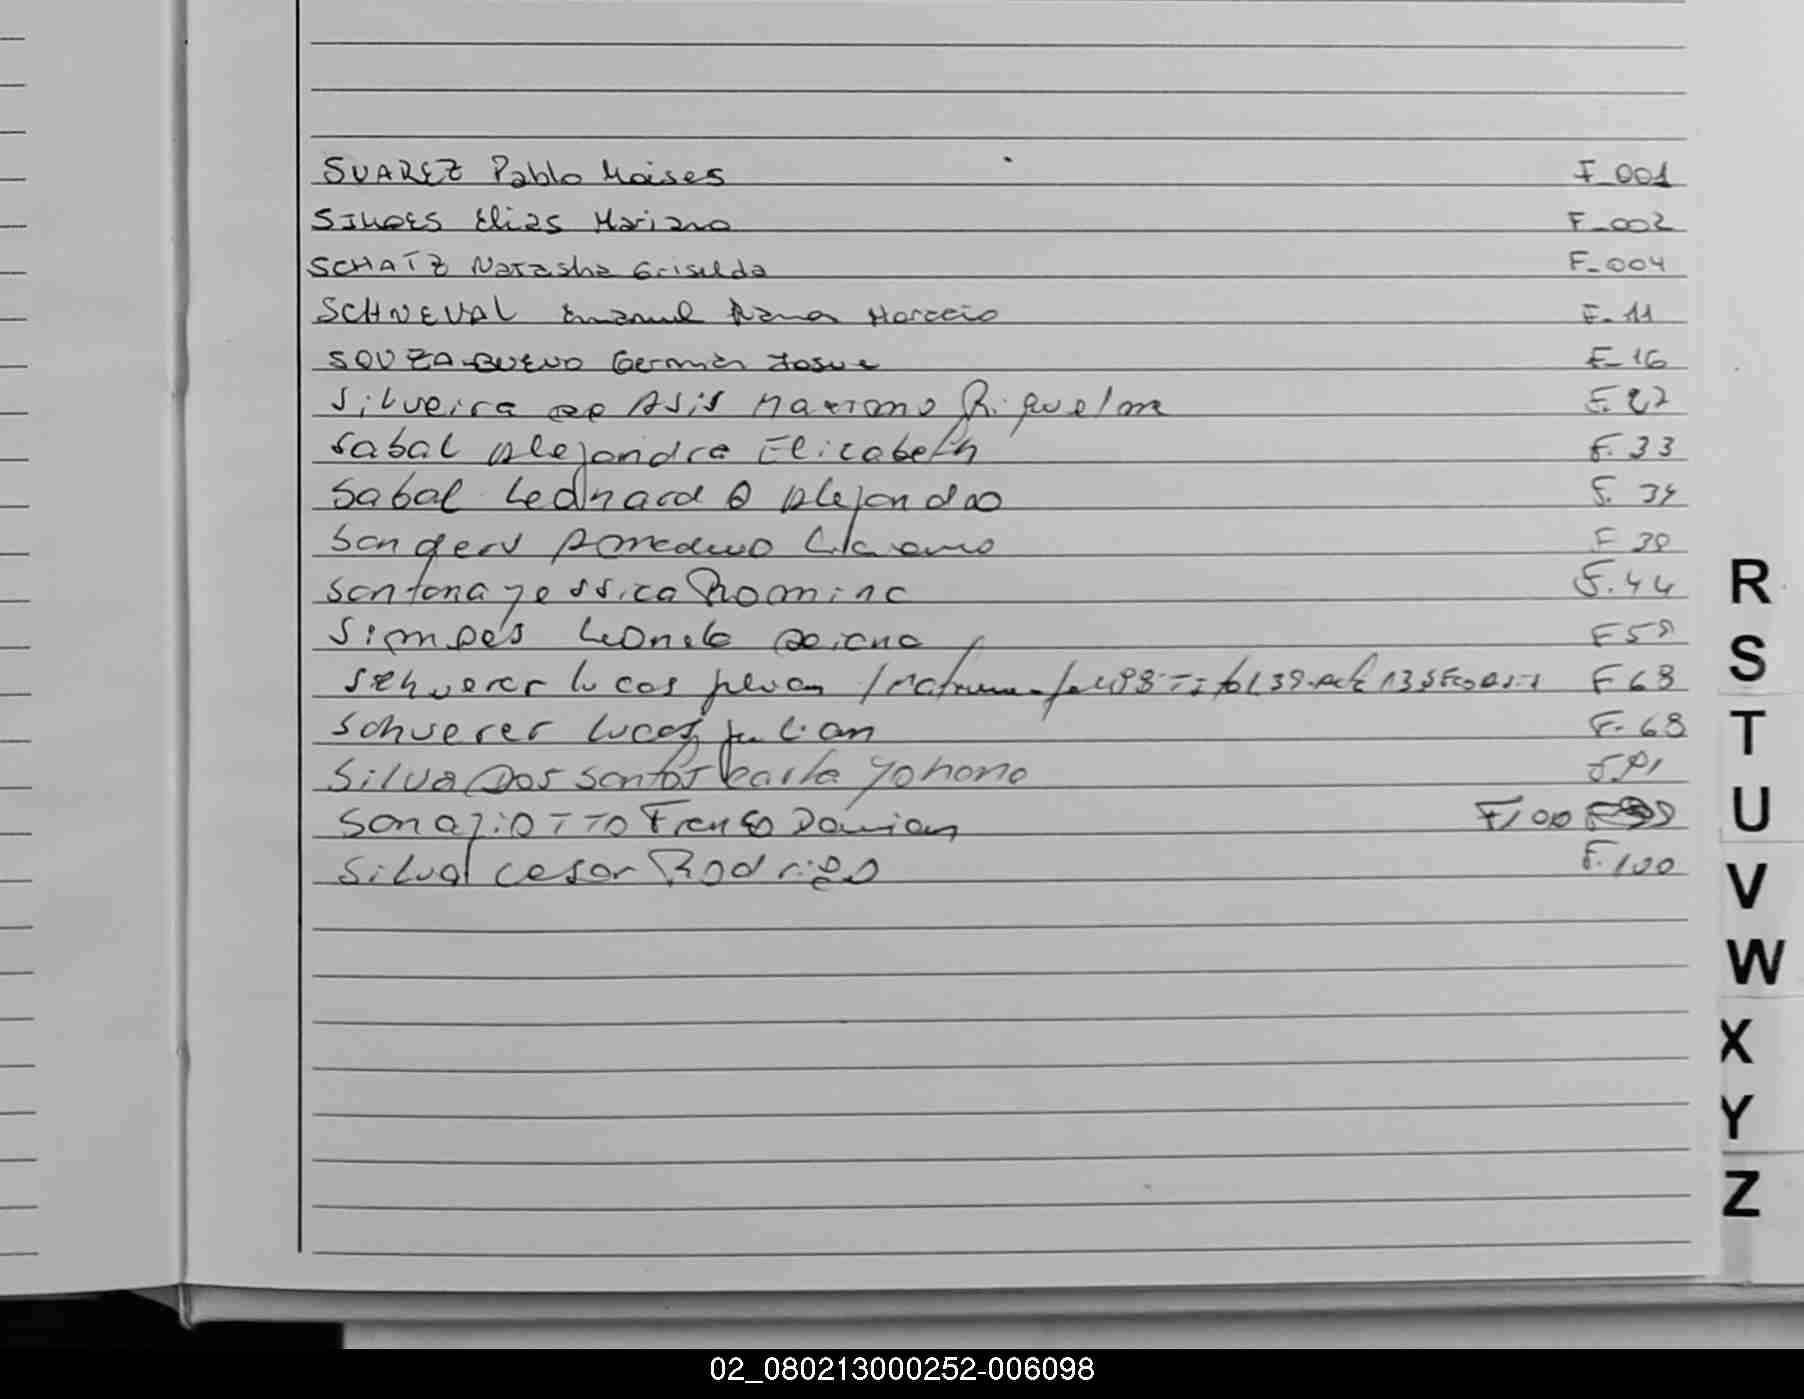 SUAREZ Pablo Moises F_001
SIMOES Elias Mariano F_002
SCHATZ Natasha Griselda F_004
SCHNEVAL Emanuel Horacio F_11
SOUZA BUENO German Josue F_16
Silveira de Asis Maximo Riquelme F.27
Sabal Alejandra Elizabeth F.33
Sabal Leonardo Alejandro F. 34
F 39
Santana Yessica Romina F.44
F 59
Schuerer Lucas Julian F 68
Schuerer Lucas Julian F. 68
Silva Dos Santos Karla Yohana
Sonaziotto Franco Damian F100
Silva Cesar Rodrigo F.100
R
S
T
U
V
W
X
Y
Z
02_080213000252-006098